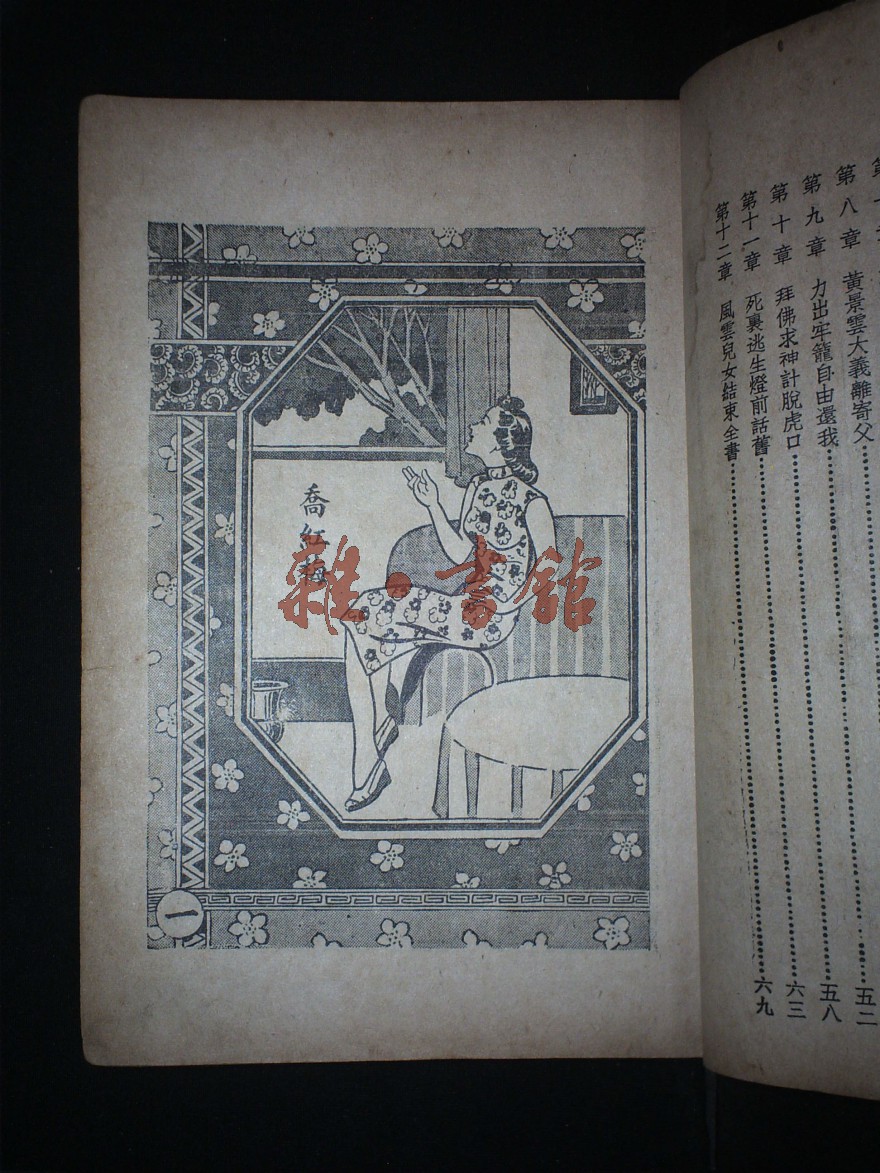 第八章 黃景雲大義離寄父
第九章 力出牢籠自由還我…………五二
第十章 拜佛求神計脫虎口…………五八
第十一章 死裏逃生燈前話舊…………六三
第十二章 風雲兒女結束全書…………六九
喬紅梅
雜·書館
一